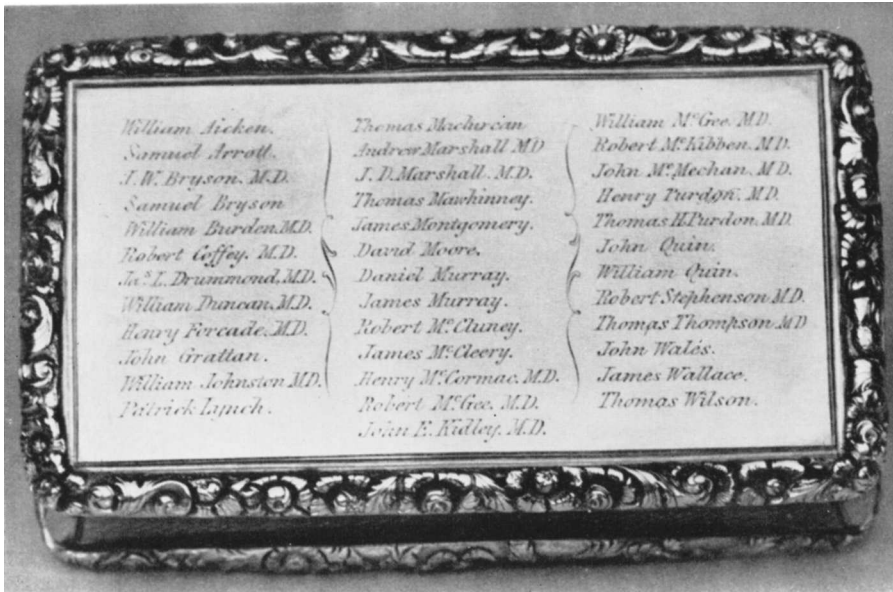 William Aicken.
Samuel Arrott.
J. W. Bryson. M.D.
Samuel Bryson
William Burden. M.D.
Robert Coffey. M.D.
Jas. L. Drummond. M.D.
William Duncan. M.D.
Henry Forcade. M.D.
John Grattan.
William Johnston M.D.
Patrick Lynch.
Thomas Maclurcan
Andrew Marshall MD
J. D. Marshall. M.D.
Thomas Mawhinney.
James Montgomery.
David Moore.
Daniel Murray.
James Murray.
Robert Mc.Cluney.
James Mc.Cleery.
Henry Mc.Cormac. M.D.
Robert Mc.Gee. M.D.
John E. Kidley. M.D.
William Mc.Gee. M.D.
Robert Mc.Kibben. M.D.
John Mc.Mechan. M.D.
Henry Purdon. M.D.
Thomas H. Purdon. M.D.
John Quin.
William Quin.
Robert Stephenson M.D.
Thomas Thompson. M.D
John Wales.
James Wallace.
Thomas Wilson.